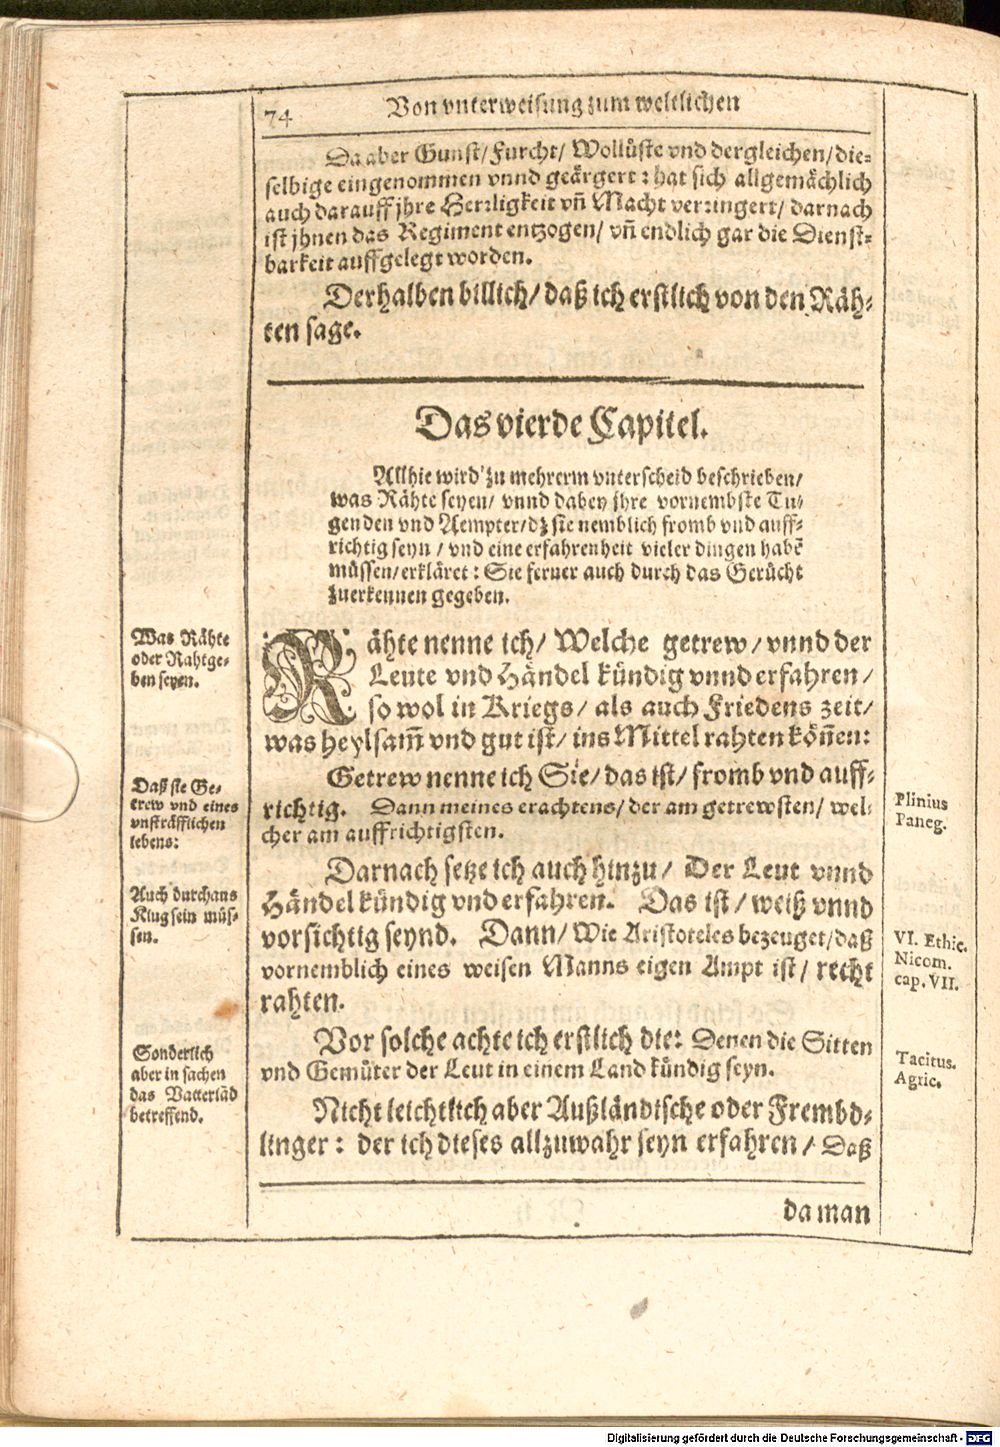 74
Von vnterweisung zum weltlichen
Da aber Gunst/ Furcht/ Wollüste vnd dergleichen/ die-
selbige eingenommen vnnd geärgert: hat sich allgemächlich
auch darauff jhre Herrligkeit vñ Macht verringert/ darnach
ist jhnen das Regiment entzogen/ vñ endlich gar die Dienst-
barkeit auffgelegt worden.
Derhalben billich/ daß ich erstlich von den Räh-
ten sage.
Das vierde Capitel.
Allhie wird zu mehrerm vnterscheid beschrieben/
was Rähte seyen/ vnnd dabey jhre vornembste Tu-
genden vnd Aempter/ dz sie nemblich fromb vnd auff-
richtig seyn/ vnd eine erfahrenheit vieler dingen habē
müssen/ erkläret: Sie ferner auch durch das Gerücht
zuerkennen gegeben.
Was Rähte
oder Rahtge-
ben seyen.
Rähte nenne ich/ Welche getrew/ vnnd der
Leute vnd Händel kündig vnnd erfahren/
so wol in Kriegs/ als auch Friedens zeit/
was heylsam̃ vnd gut ist/ ins Mittel rahten kön̄en:
Daß sie Ge-
trew vnd eines
vnsträfflichen
lebens:
Getrew nenne ich Sie/ das ist/ fromb vnd auff-
richtig. Dann meines erachtens/ der am getrewsten/ wel-
cher am auffrichtigsten.
Plinius
Paneg.
Auch durchaus
Klug sein müs-
sen.
Darnach setze ich auch hinzu/ Der Leut vnnd
Händel kündig vnd erfahren. Das ist/ weiß vnnd
vorsichtig seynd. Dann/ Wie Aristoteles bezeuget/ daß
vornemblich eines weisen Manns eigen Ampt ist/ recht
rahten.
VI. Ethic.
Nicom.
cap. VII.
Sonderlich
aber in sachen
das Vatterlād
betreffend.
Vor solche achte ich erstlich die: Denen die Sitten
vnd Gemüter der Leut in einem Land kündig seyn.
Tacitus.
Agric.
Nicht leichtlich aber Außländische oder Frembd-
linger: der ich dieses allzuwahr seyn erfahren/ Daß
da man
Digitalisierung gefördert durch die Deutsche Forschungsgemeinschaft - DFG